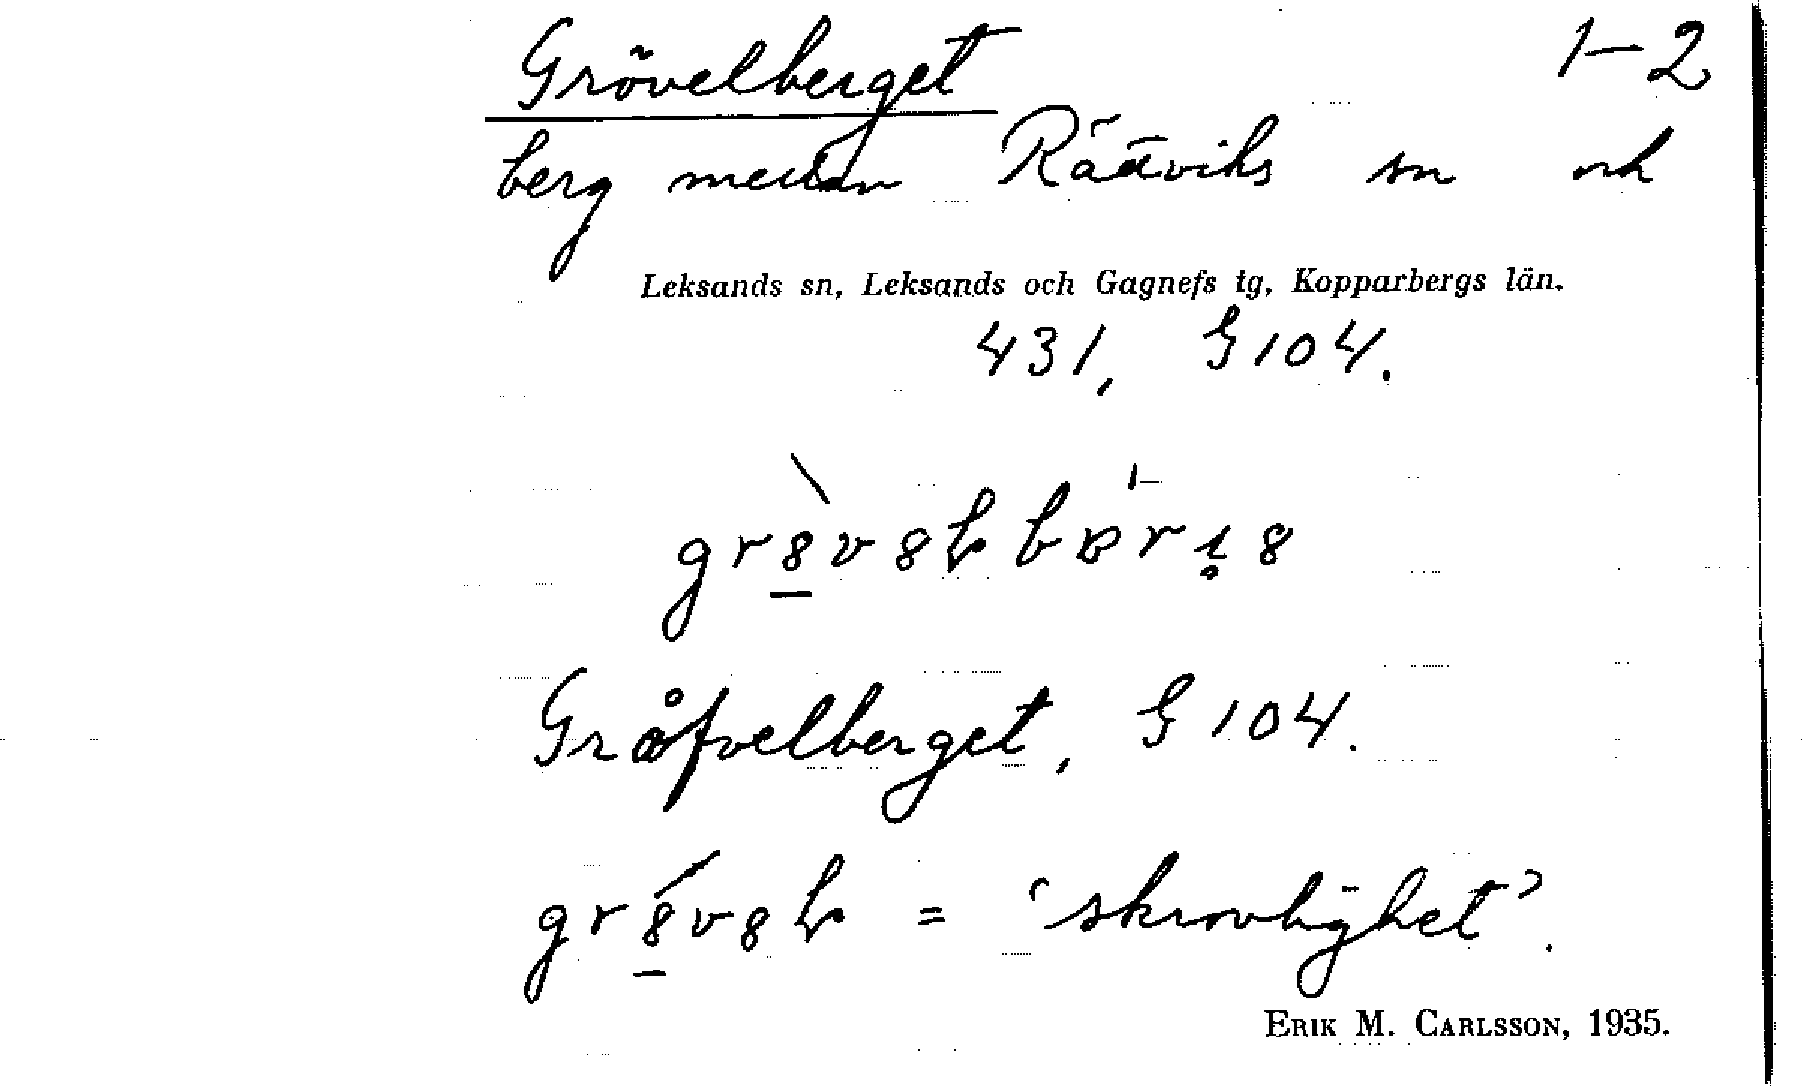 Grövelberget 1-2
berg mellan Rättviks sn och
Leksands sn, Leksands och Gagnefs tg, Kopparbergs län.
431, G 104.
Gråfvelberget, G 104.
= 'skrovlighet'.
ERIK M. CARLSSON, 1935.